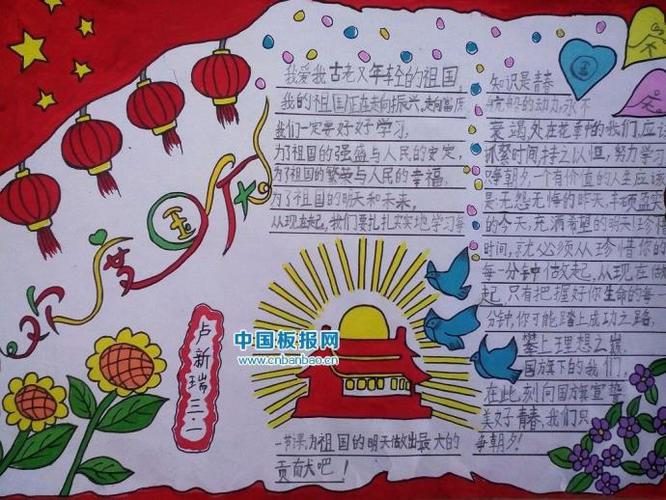 欢度国庆
卢新瑞三.一
中国板报网
www.cnbanbao.cn
我爱我古老又年轻的祖国
我的祖国正在走向振兴,走向富庶
我们一定要好好学习,
为了祖国的强盛与人民的安定,
为了祖国的繁荣与人民的幸福.
为了祖国的明天和未来,
从现在起,我们要扎扎实实地学习每
一节课,为祖国的明天做出最大的
贡献吧!
国
知识是青春
的动力,永不
衰竭.处在花季的我们,应
抓紧时间,持之以恒,努力学习
争朝夕.一个有价值的人生应该
是:无怨无悔的昨天,丰硕
的今天,充满希望的明天!珍惜
时间,就必须从珍惜你的
每一分钟做起,从现在做
起,只有把握好你生命的每一
分钟,你可能踏上成功之路,
攀上理想之巅.
国旗下的我们,
在此刻向国旗宣誓
美好青春,我们只
争朝夕!